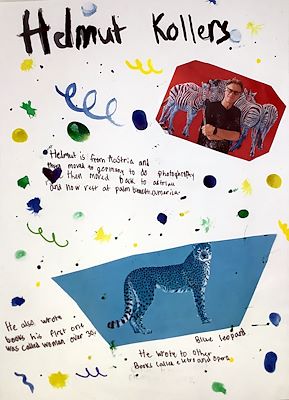 Helmut Kollers
Helmut is from Austria and
then moved to germany to do photography
then moved back to
and now rest at palm beach america.
He also wrote
books his first one
was called woman over 30.
Blue leopard
He wrote to other
Books called electro and opera